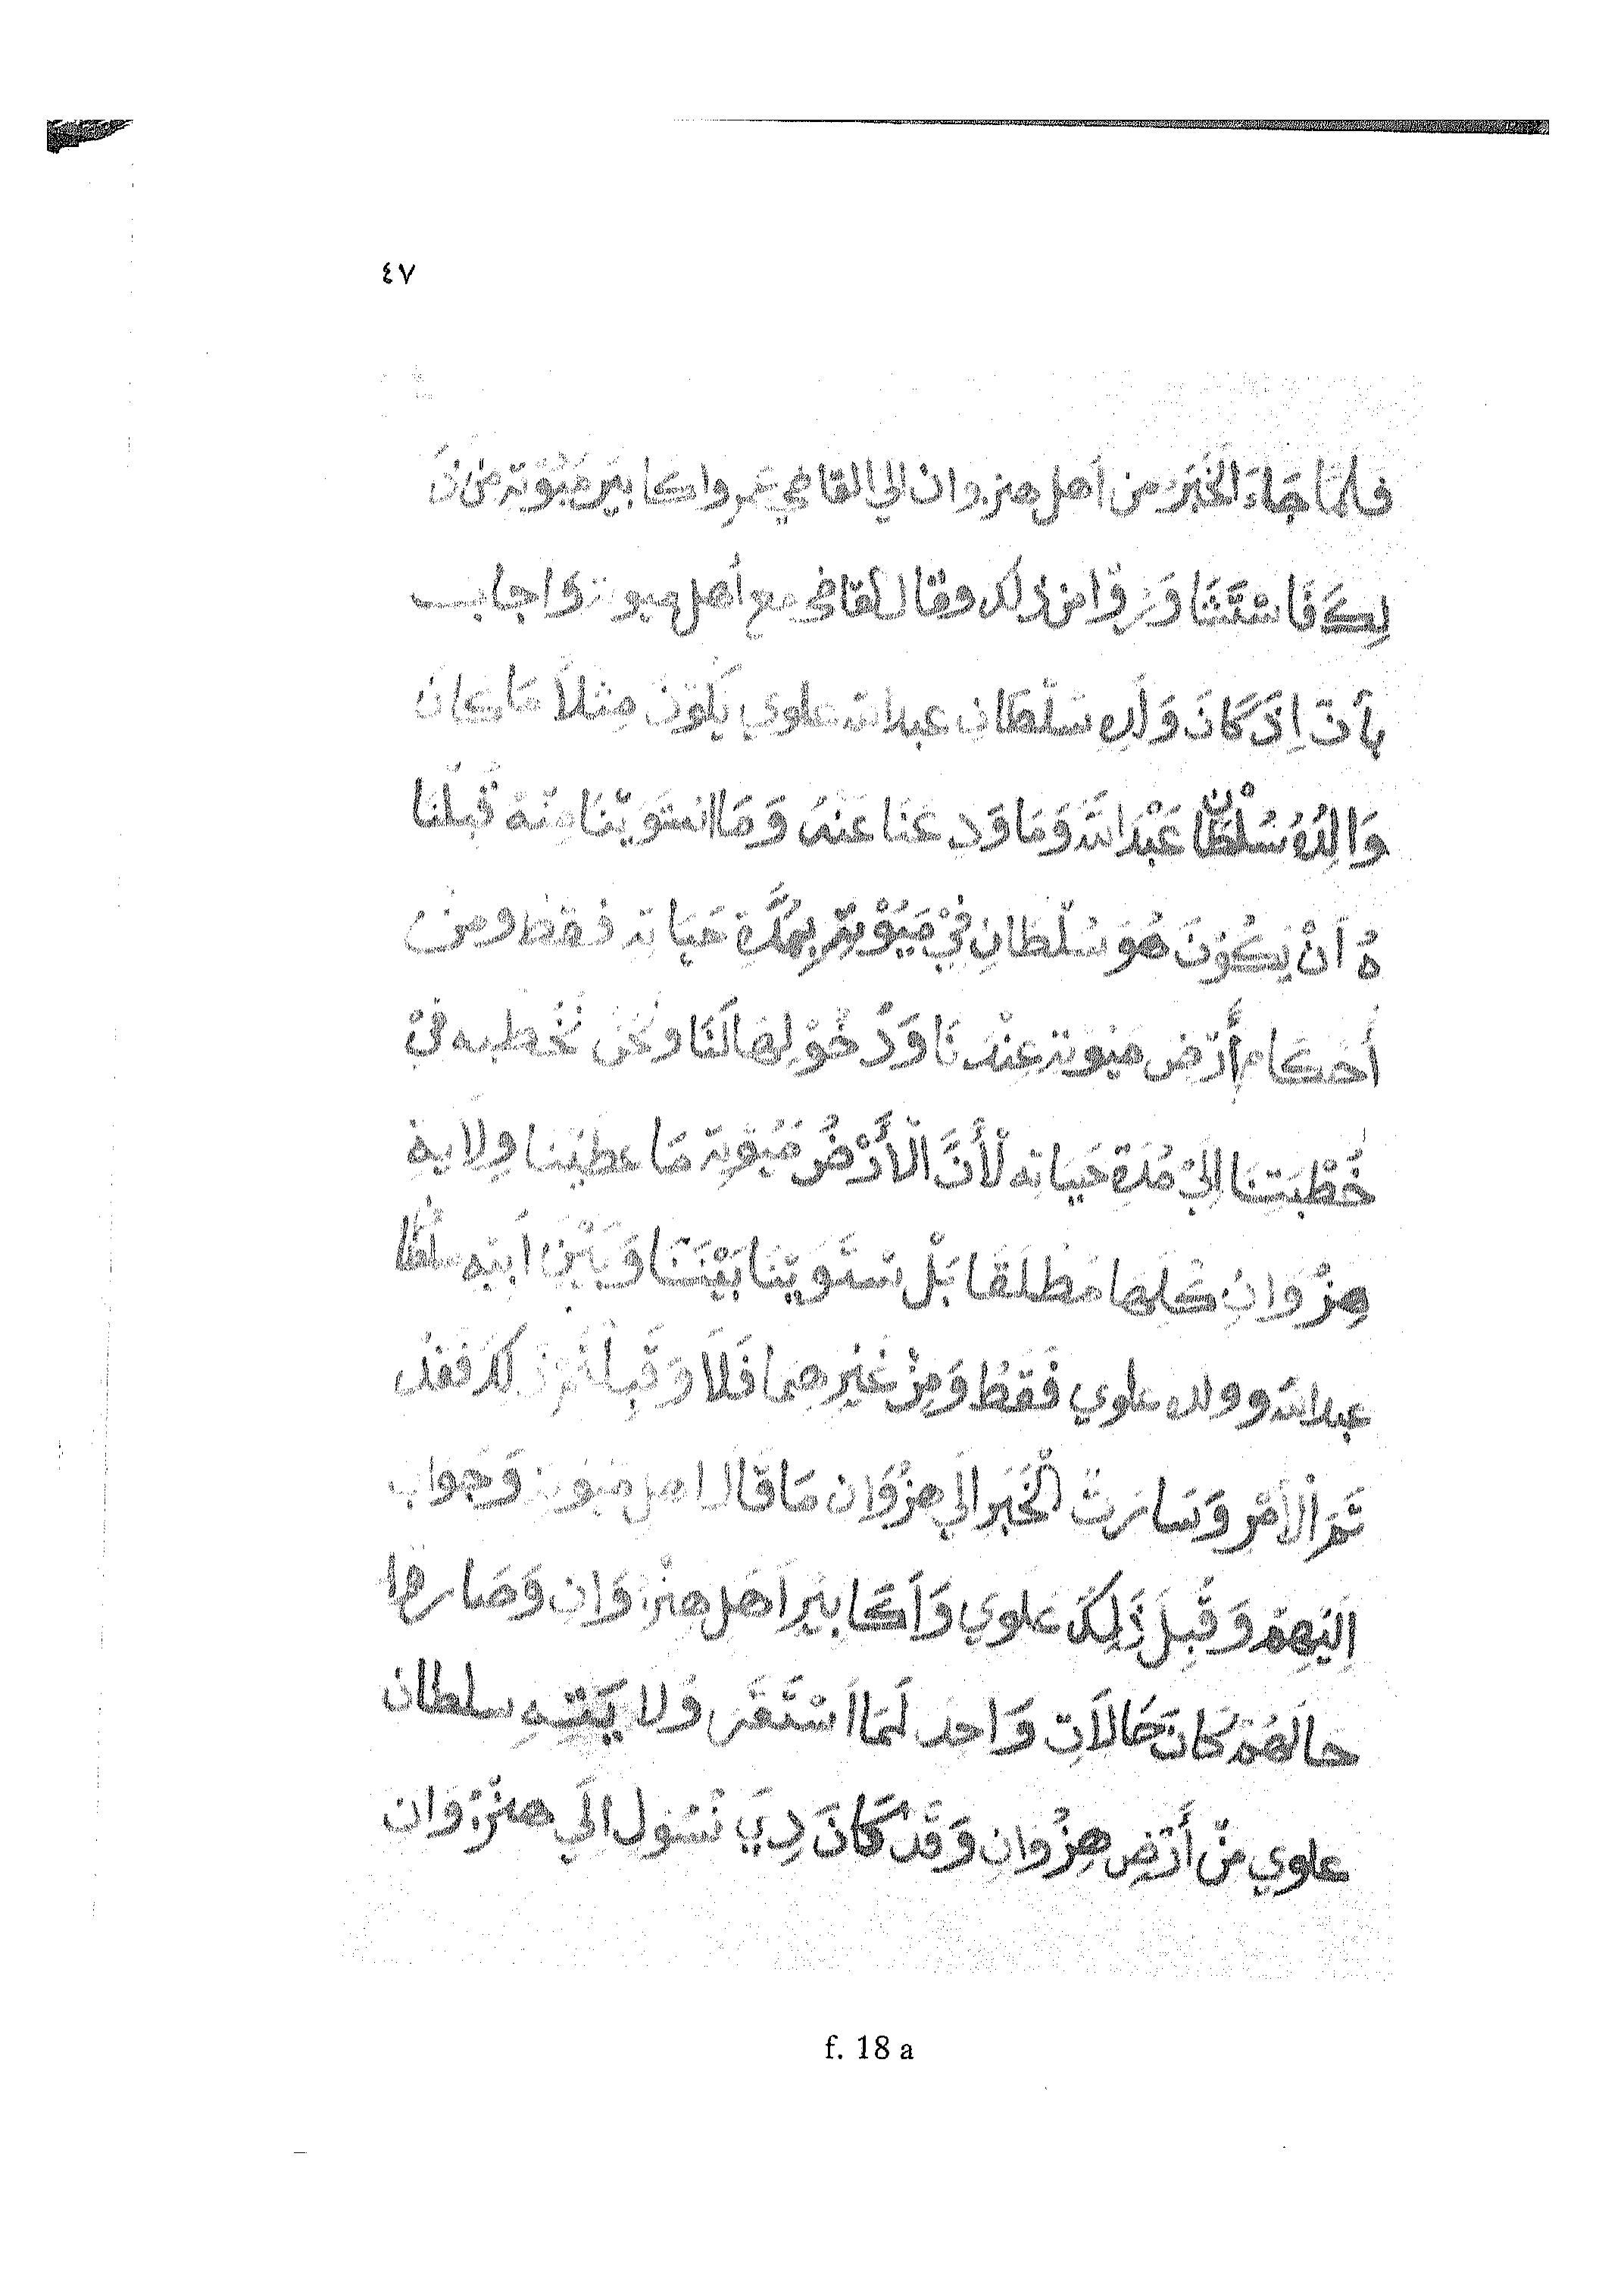 ٤٧
فَلَمَّا جَاءَ الْخَبَرُ من أهل هنزوان الي القاضي عمر واكابير مَيُوتة من ذَ
لِكَ فَاسْتَشَاوَرُوا من ذلك وقال القاضي مع أهل ميوتة واجاب
بِأَنّ اِذَى كَانَ وَلَدِهِ سُلْطَانِ عبدالله علوي يَكُوْنُ مِثْلاً مَا كان
وَالِدُهُ سُلْطَانٌ عَبْدَاللهُ وَمَا وَدِعَنَا عَنْهُ وَمَا انستَوَيْنَا مِنْهُ قَبِلْنَا
هُ اَنْ يَكُوْنَ هُوَ سُلْطَانِ فِيْ مَيُوْتَةِ بِمُدَّةِ حَيَاته فقط ومن
أَحْكَامِ أَرْضِ مَيُوتة عِنْدَنَا وَدُخُوْلِهَا لَنَا ونحن نُخْطِبه فِيْ
خُطْبَتِنَا اِلَيْ مُدَةِ حَيَاته لْأَنَّ الْأَرْضُ مَيُوْتة مَا عطيْنا وِلاية
هِنزْوَانِ كُلِهَا مَطْلَقًا بَلْ ستَوَيْنَا بَيْنَنَا وَبَيْنَ أَبِيْهِ سلْطَا
عبدالله وولده علوي فَقَطْ وَمِنْ غَيْرِهِمَا فَلَا وَقَبِلَهُمْ ذَلِكَ فَقَدْ
تَمَّ الْأَمْرِ وَسَارَتْ الْخَبَر اِلَي هِنزْوَان مَا قَالَ اهل مَيُوتة وَجَواب
اِلَيْهِمْ وَقَبِلَ ذَلِكَ عَلوي وَأَكَابِيْرِ اَهْلِ هنزْوَانِ وَصَارهَا
حالَهُمْ كَانَ حَالاَتِ وَاحِد لَمَا اَسْتَقَر وَلا يَبْقِيهِ سلطان
علوي مِنْ أَرْضِ هِنزْوانِ وَقَدْ كَانَ دِيَ نَسُوْل اِلَي هنزُوَان
f. 18 a